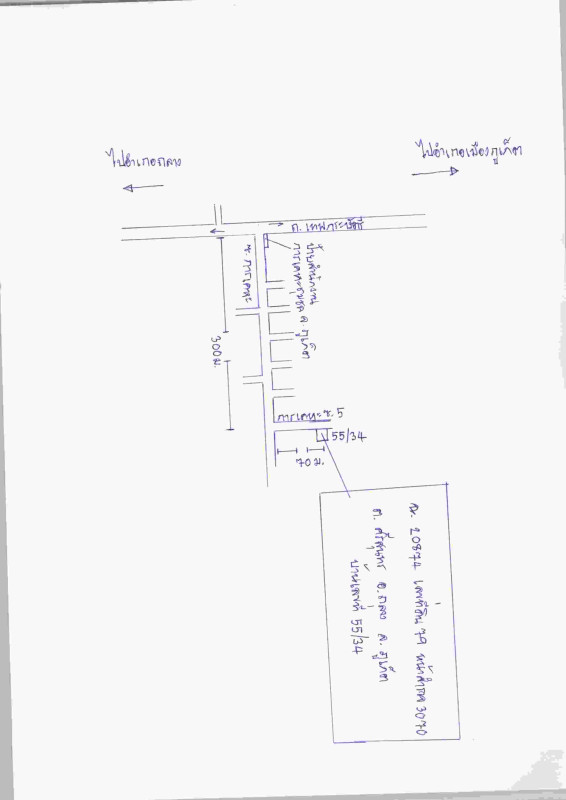 ไปอำเภอถลาง
ไปอำเภอเมืองภูเก็ต
ถ. เทพกระษัตรี
ป้ายสำนักงาน
การเคหะชุมชน จ. ภูเก็ต
ซ. การเคหะ
300 ม.
การเคหะ ซ. 5
55/34
70 ม.
ฉ. 20874 เลขที่ดิน 79 หน้าสำรวจ 3070
ต. ศรีสุนทร อ. ถลาง จ. ภูเก็ต
บ้านเลขที่ 55/34